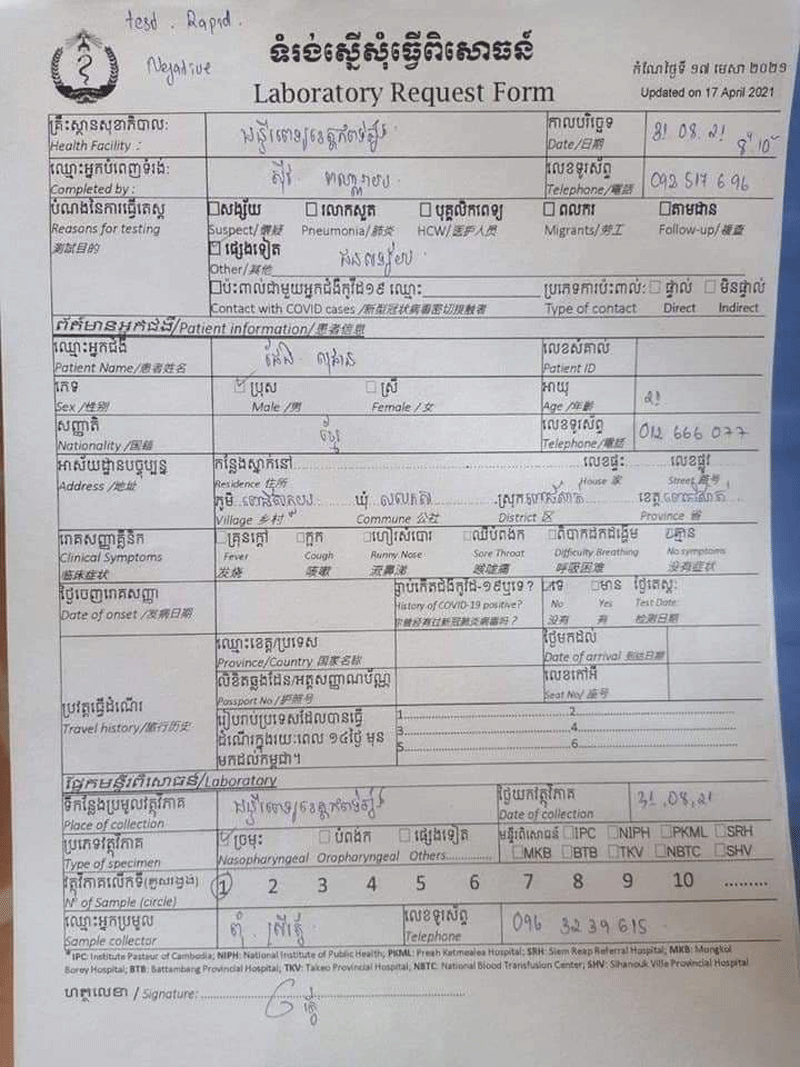 test . Rapid .
Negative
ទំរង់ស្នើសុំធ្វើពិសោធន៍
Laboratory Request Form
កំណែថ្ងៃទី ១៧ មេសា ២០២១
Updated on 17 April 2021
គ្រឹះស្ថានសុខាភិបាល:
Health Facility :
កាលបរិច្ឆេទ
Date/日期
31 08. 21
ឈ្មោះអ្នកបំពេញទំរង់:
Completed by :
លេខទូរស័ព្ទ
Telephone/電話
092 517 696
បំណងនៃការធ្វើតេស្ត
Reasons for testing
測試目的
សង្ស័យ រលាកសួត បុគ្គលិកពេទ្យ ពលករ តាមដាន
Suspect/懷疑 Pneumonia/肺炎 HCW/医护人员 Migrants/劳工 Follow-up/複查
ផ្សេងទៀត
Other/其他
ប៉ះពាល់ជាមួយអ្នកជំងឺកូវីដ១៩ ឈ្មោះ
Contact with COVID cases /新型冠状病毒密切接触者
ប្រភេទការប៉ះពាល់: ផ្ទាល់ មិនផ្ទាល់
Type of contact Direct Indirect
ព័ត៌មានអ្នកជំងឺ/Patient information/患者信息
ឈ្មោះអ្នកជំងឺ
Patient Name/患者姓名
លេខសំគាល់
Patient ID
ភេទ
Sex /性别
ប្រុស ស្រី
Male /男 Female / 女
អាយុ
Age /年齡
21
សញ្ជាតិ
Nationality /国籍
ខ្មែរ
លេខទូរស័ព្ទ
Telephone/電話
012 666 077
អាស័យដ្ឋានបច្ចុប្បន្ន
Address /地址
កន្លែងស្នាក់នៅ លេខផ្ទះ លេខផ្លូវ
Residence 住所 House 家 Street 路号
ភូមិ ឃុំ ស្រុក ខេត្ត
Village 乡村 Commune 公社 District 区 Province 省
រោគសញ្ញាគ្លីនិក
Clinical Symptoms
临床症状
គ្រុនក្តៅ ក្អក ហៀរសំបោរ ឈឺបំពង់ក ពិបាកដកដង្ហើម គ្មាន
Fever Cough Runny Nose Sore Throat Difficulty Breathing No symptoms
发烧 咳嗽 流鼻涕 喉咙痛 呼吸困难 没有症状
ថ្ងៃចេញរោគសញ្ញា
Date of onset /发病日期
ធ្លាប់កើតជំងឺកូវីដ-១៩ឬទេ? ទេ មាន ថ្ងៃតេស្ត:
History of COVID-19 positive? No Yes Test Date:
你曾经有过新冠肺炎病毒吗？ 没有 有 检测日期
ប្រវត្តធ្វើដំណើរ
Travel history/旅行历史
ឈ្មោះខេត្ត/ប្រទេស
Province/Country 国家名称
ថ្ងៃមកដល់
Date of arrival 到达日期
លិខិតឆ្លងដែន/អត្តសញ្ញាណប័ណ្ណ
Passport No /护照号
លេខកៅអី
Seat No/ 座号
រៀបរាប់ប្រទេសដែលបានធ្វើ
ដំណើរក្នុងរយៈពេល ១៤ថ្ងៃ មុន
មកដល់កម្ពុជា។
1 2
3 4
5 6
ផ្នែកមន្ទីរពិសោធន៍/Laboratory
ទីកន្លែងប្រមូលវត្ថុវិភាគ
Place of collection
ថ្ងៃយកវត្ថុវិភាគ
Date of collection
31 . 08 . 21
ប្រភេទវត្ថុវិភាគ
Type of specimen
ច្រមុះ បំពង់ក ផ្សេងទៀត
Nasopharyngeal Oropharyngeal Others..............
មន្ទីរពិសោធន៍ IPC NIPH PKML SRH
MKB BTB TKV NBTC SHV
វត្ថុវិភាគលើកទី(គូសរង្វង់)
N° of Sample (circle)
1 2 3 4 5 6 7 8 9 10 .........
ឈ្មោះអ្នកប្រមូល
Sample collector
លេខទូរស័ព្ទ
Telephone
096 32 39 615
*IPC: Institute Pastaur of Cambodia; NIPH: National Institute of Public Health; PKML: Preah Ketmealea Hospital; SRH: Siem Reap Referral Hospital; MKB: Mongkol
Borey Hospital; BTB: Battambang Provincial Hospital; TKV: Takeo Provincial Hospital; NBTC: National Blood Transfusion Center; SHV: Sihanouk Ville Provincial Hospital
ហត្ថលេខា / Signature: